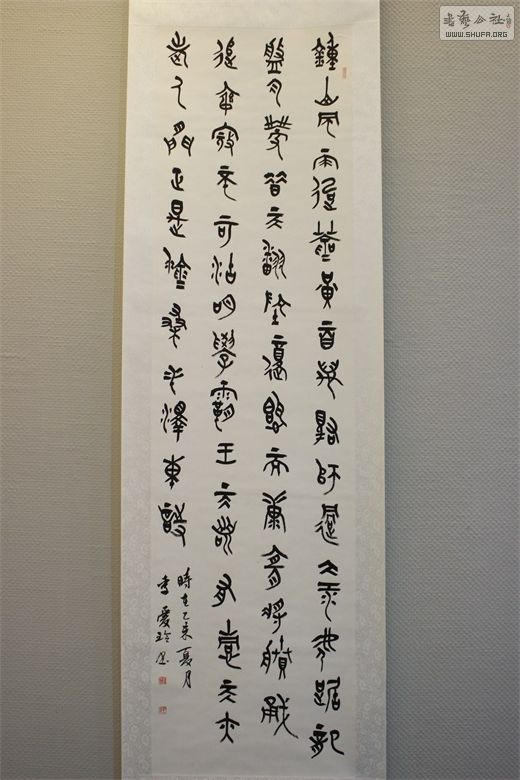 鍾山風雨起蒼黃百萬雄師過大江虎踞龍
盤今勝昔天翻地覆慨而慷宜將賸勇
追窮寇不可沽名學霸王天若有情天亦
老人間正是滄桑毛澤東詩
時在乙未夏月
李愛玲書
书艺公社
WWW.SHUFA.ORG